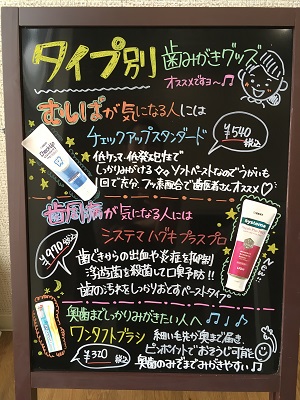 タイプ別 歯みがきグッズ
オススメですヨ〜♪
むしばが気になる人には
チェックアップスタンダード
¥540 税込
低研磨・低発泡性で
しっかりみがける ソフトペーストなのでうがいも
1回で充分。フッ素配合で歯医者さんオススメ♡
歯周病が気になる人には
システマ ハグキプラスプロ
¥970 税込
Systema
歯ぐきからの出血や炎症を抑制!
浮遊菌を殺菌して口臭予防!!
歯の汚れをしっかりおとすペーストタイプ
New!!
奥歯までしっかりみがきたい人へ♪♪♪
ワンタフトブラシ
¥320 税込
細い毛先が奥まで届き
ピンポイントでおそうじ可能
奥歯のみぞまでみがきやすい♪